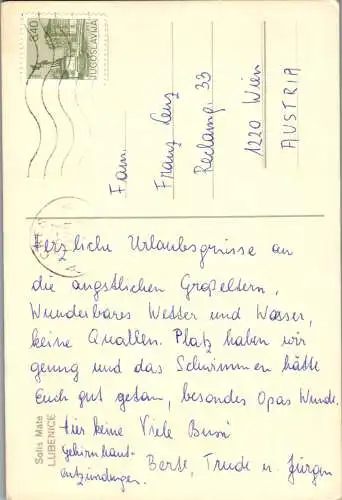 3.40
JUGOSLAVIJA
Fam.
Franz Lenz
Reclamg. 33
1220 Wien
AUSTRIA
Herzliche Urlaubsgrüsse an
die ängstlichen Großeltern,
Wunderbares Wetter und Wasser,
keine Quallen. Platz haben wir
genug und das Schwimmen hätte
Euch gut getan, besondes Opas Wunde.
Hier keine Viele Bussi
gehirnhaut-
entzündungen. Trude u. Jürgen
Solis Mate
LUBENICE